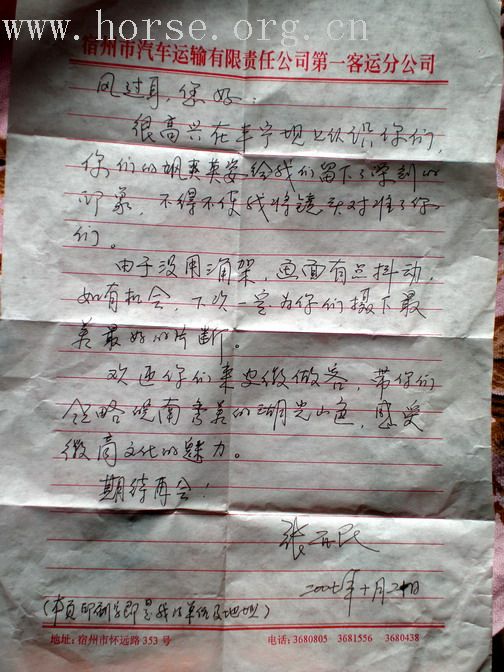 www.horse.org.cn
宿州市汽车运输有限责任公司第一客运分公司
风过耳，您好：
很高兴在丰宁坝上认识你们，
你们的飒爽英姿给我们留下了深刻的
印象，不得不使我将镜头对准了你
们。
由于没用三角架，画面有点抖动，
如有机会，下次一定为你们摄下最
美最好的片断。
欢迎你们来安徽做客，带你们
领略皖南秀美的湖光山色，感受
徽商文化的魅力。
期待再会！
张 民
年十月 日
（本页印制的即是我的单位及地址）
地址：宿州市怀远路353号 电话：3680805 3681556 3680438